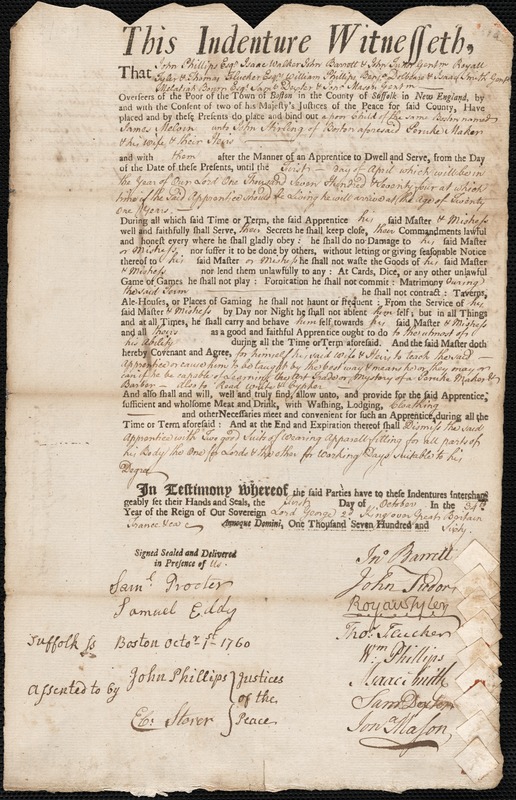 This Indenture Witnesseth,
John Phillips Esqr Isaac Walker John Barrett & John Tudor Gentm Royall
That Tyler & Thomas Flucker Esqrs William Phillips Benja Dolbeare & Isaac Smith Gentm
Esqr Saml Dexter & Jona Mason Gentm
Overseers of the Poor of the Town of Boston in the County of Suffolk in New England, by
and with the Consent of two of his Majesty's Justices of the Peace for said County, Have
placed and by these Presents do place and bind out a poor Child of the same Boston named
James unto John Stirling of Boston aforesaid Peruke Maker
& his Wife & their Heirs
and with them after the Manner of an Apprentice to Dwell and Serve, from the Day
of the Date of these Presents, until the first Day of April which will be in
the Year of Our Lord One Thousand Seven Hundred & Seventy four at which
time if the said Apprentice should be Living he will arrive at the Age of Twenty
One Years
During all which said Time or Term, the said Apprentice his said Master & Mistress
well and faithfully shall Serve, their Secrets he shall keep close, their Commandments lawful
and honest every where he shall gladly obey: he shall do no Damage to his said Master
or Mistress nor suffer it to be done by others, without letting or giving seasonable Notice
thereof to his said Master or Mistress he shall not waste the Goods of his said Master
& Mistress nor lend them unlawfully to any: At Cards, Dice, or any other unlawful
Game or Games he shall not play: Fornication he shall not commit: Matrimony during
the said Term he shall not contract: Taverns,
Ale-Houses, or Places of Gaming he shall not haunt or frequent: From the Service of his
said Master & Mistress by Day nor Night he shall not absent himself; but in all Things
and at all Times, he shall carry and behave himself towards his said Master & Mistress
and all theirs as a good and faithful Apprentice ought to do to the utmost of
his ability during all the Time or Term aforesaid. And the said Master doth
hereby Covenant and Agree, for himself his said Wife & Heirs to teach the said
Apprentice or cause him to be taught by the best way & means he or they may or
can if he be capable of learning the Art Trade or Mystery of a Peruke Maker &
Barber also to Read Write & Cypher
And also shall and will, well and truly find, allow unto, and provide for the said Apprentice,
sufficient and wholsome Meat and Drink, with Washing, Lodging, Cloathing
and other Necessaries meet and convenient for such an Apprentice, during all the
Time or Term aforesaid: And at the End and Expiration thereof shall Dismiss the said
Apprentice with Two good Suits of Wearing Apparell fitting for all parts of
his Body the One for Lords & the other for Working Days suitable to his
Degree
In Testimony whereof, the said Parties have to these Indentures interchangeably
geably set their Hands and Seals, the first Day of October In the 34th
Year of the Reign of Our Sovereign Lord George 2d King over Great Britain
France &ca Annoque Domini, One Thousand Seven Hundred and Sixty
Signed Sealed and Delivered
in Presence of Us.
Saml Procter
Samuel Eddy
Suffolk ss Boston Octor 1st 1760
Assented to by John Phillips Justices
of the
Storer Peace
Jno Barrett
John Tudor
Royall Tyler
Thos Flucker
Wm Phillips
Isaac Smith
Saml Dexter
Jona Mason